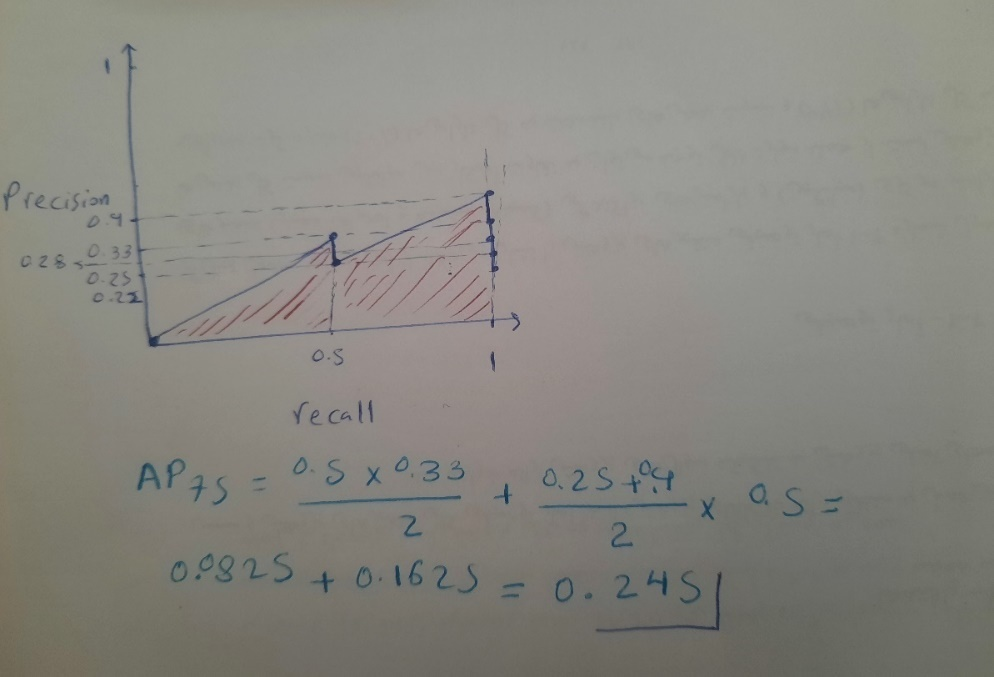 1
Precision
0.4
0.33
0.28
0.25
0.22
0.5
1
recall
AP75 = 0.5 x 0.33 / 2 + 0.25 + 0.4 / 2 x 0.5 =
0.0825 + 0.1625 = 0.245